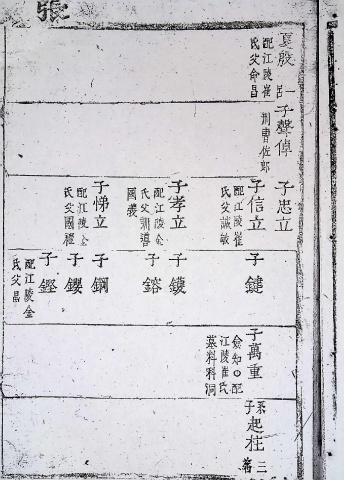 張
夏殷
配江陵崔
氏父命昌
一呂
子聲倬
刑曹佐郎
子忠立
子信立
配江陵崔
氏父誠敏
子孝立
配江陵金
氏父訓導
國義
子悌立
配江陵金
氏父國樞
子鍵
子鑊
子鎔
子鋼
子鏗
配江陵金
氏父昌
子萬重
僉知○配
江陵崔氏
墓科洞
系子起柱
三